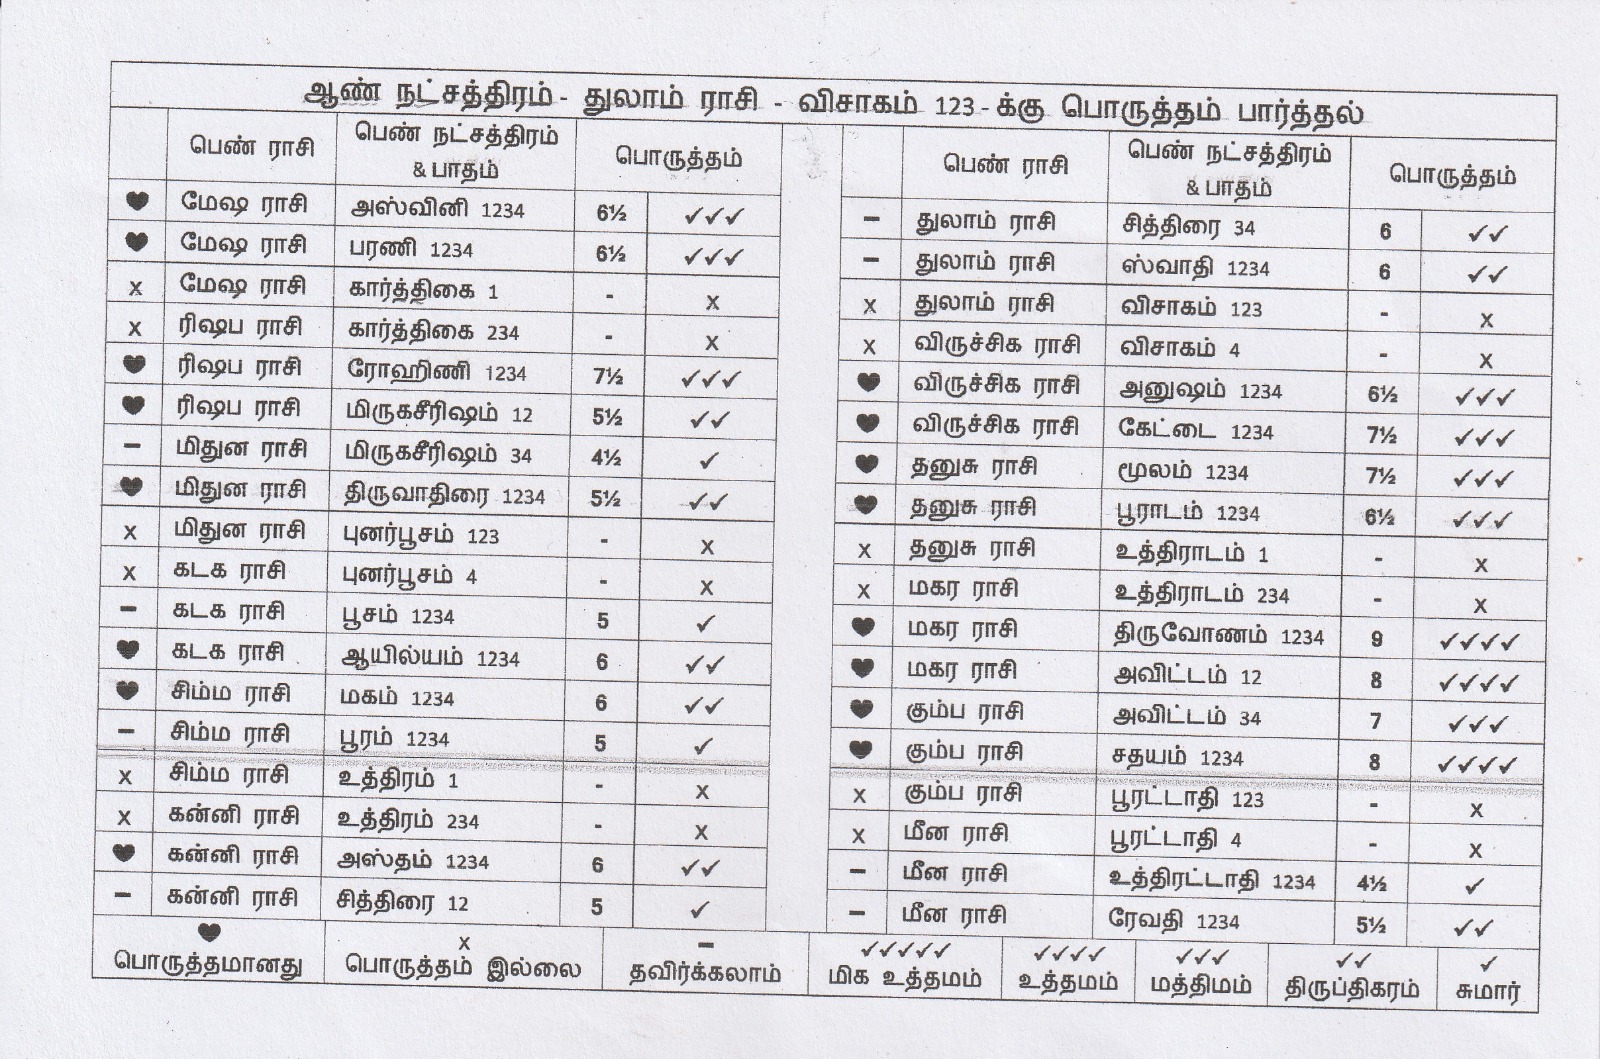 ஆண் நட்சத்திரம் - துலாம் ராசி - விசாகம் 123 - க்கு பொருத்தம் பார்த்தல்
பெண் ராசி பெண் நட்சத்திரம் & பாதம் பொருத்தம்
♥ மேஷ ராசி அஸ்வினி 1234 6½ ✓✓✓
♥ மேஷ ராசி பரணி 1234 6½ ✓✓✓
x மேஷ ராசி கார்த்திகை 1 - x
x ரிஷப ராசி கார்த்திகை 234 - x
♥ ரிஷப ராசி ரோஹிணி 1234 7½ ✓✓✓
♥ ரிஷப ராசி மிருகசீரிஷம் 12 5½ ✓✓
– மிதுன ராசி மிருகசீரிஷம் 34 4½ ✓
♥ மிதுன ராசி திருவாதிரை 1234 5½ ✓✓
x மிதுன ராசி புனர்பூசம் 123 - x
x கடக ராசி புனர்பூசம் 4 - x
– கடக ராசி பூசம் 1234 5 ✓
♥ கடக ராசி ஆயில்யம் 1234 6 ✓✓
♥ சிம்ம ராசி மகம் 1234 6 ✓✓
– சிம்ம ராசி பூரம் 1234 5 ✓
x சிம்ம ராசி உத்திரம் 1 - x
x கன்னி ராசி உத்திரம் 234 - x
♥ கன்னி ராசி அஸ்தம் 1234 6 ✓✓
– கன்னி ராசி சித்திரை 12 5 ✓
பெண் ராசி பெண் நட்சத்திரம் & பாதம் பொருத்தம்
– துலாம் ராசி சித்திரை 34 6 ✓✓
– துலாம் ராசி ஸ்வாதி 1234 6 ✓✓
x துலாம் ராசி விசாகம் 123 - x
x விருச்சிக ராசி விசாகம் 4 - x
♥ விருச்சிக ராசி அனுஷம் 1234 6½ ✓✓✓
♥ விருச்சிக ராசி கேட்டை 1234 7½ ✓✓✓
♥ தனுசு ராசி மூலம் 1234 7½ ✓✓✓
♥ தனுசு ராசி பூராடம் 1234 6½ ✓✓✓
x தனுசு ராசி உத்திராடம் 1 - x
x மகர ராசி உத்திராடம் 234 - x
♥ மகர ராசி திருவோணம் 1234 9 ✓✓✓✓
♥ மகர ராசி அவிட்டம் 12 8 ✓✓✓✓
♥ கும்ப ராசி அவிட்டம் 34 7 ✓✓✓
♥ கும்ப ராசி சதயம் 1234 8 ✓✓✓✓
x கும்ப ராசி பூரட்டாதி 123 - x
x மீன ராசி பூரட்டாதி 4 - x
– மீன ராசி உத்திரட்டாதி 1234 4½ ✓
– மீன ராசி ரேவதி 1234 5½ ✓✓
♥ x – ✓✓✓✓✓ ✓✓✓✓ ✓✓✓ ✓✓ ✓
பொருத்தமானது பொருத்தம் இல்லை தவிர்க்கலாம் மிக உத்தமம் உத்தமம் மத்திமம் திருப்திகரம் சுமார்